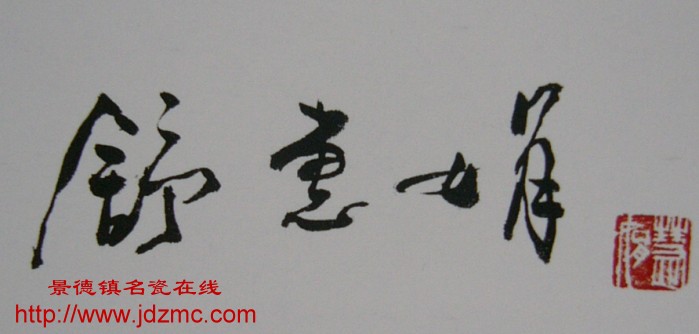 舒惠娟
景德镇名瓷在线
http://www.jdzmc.com